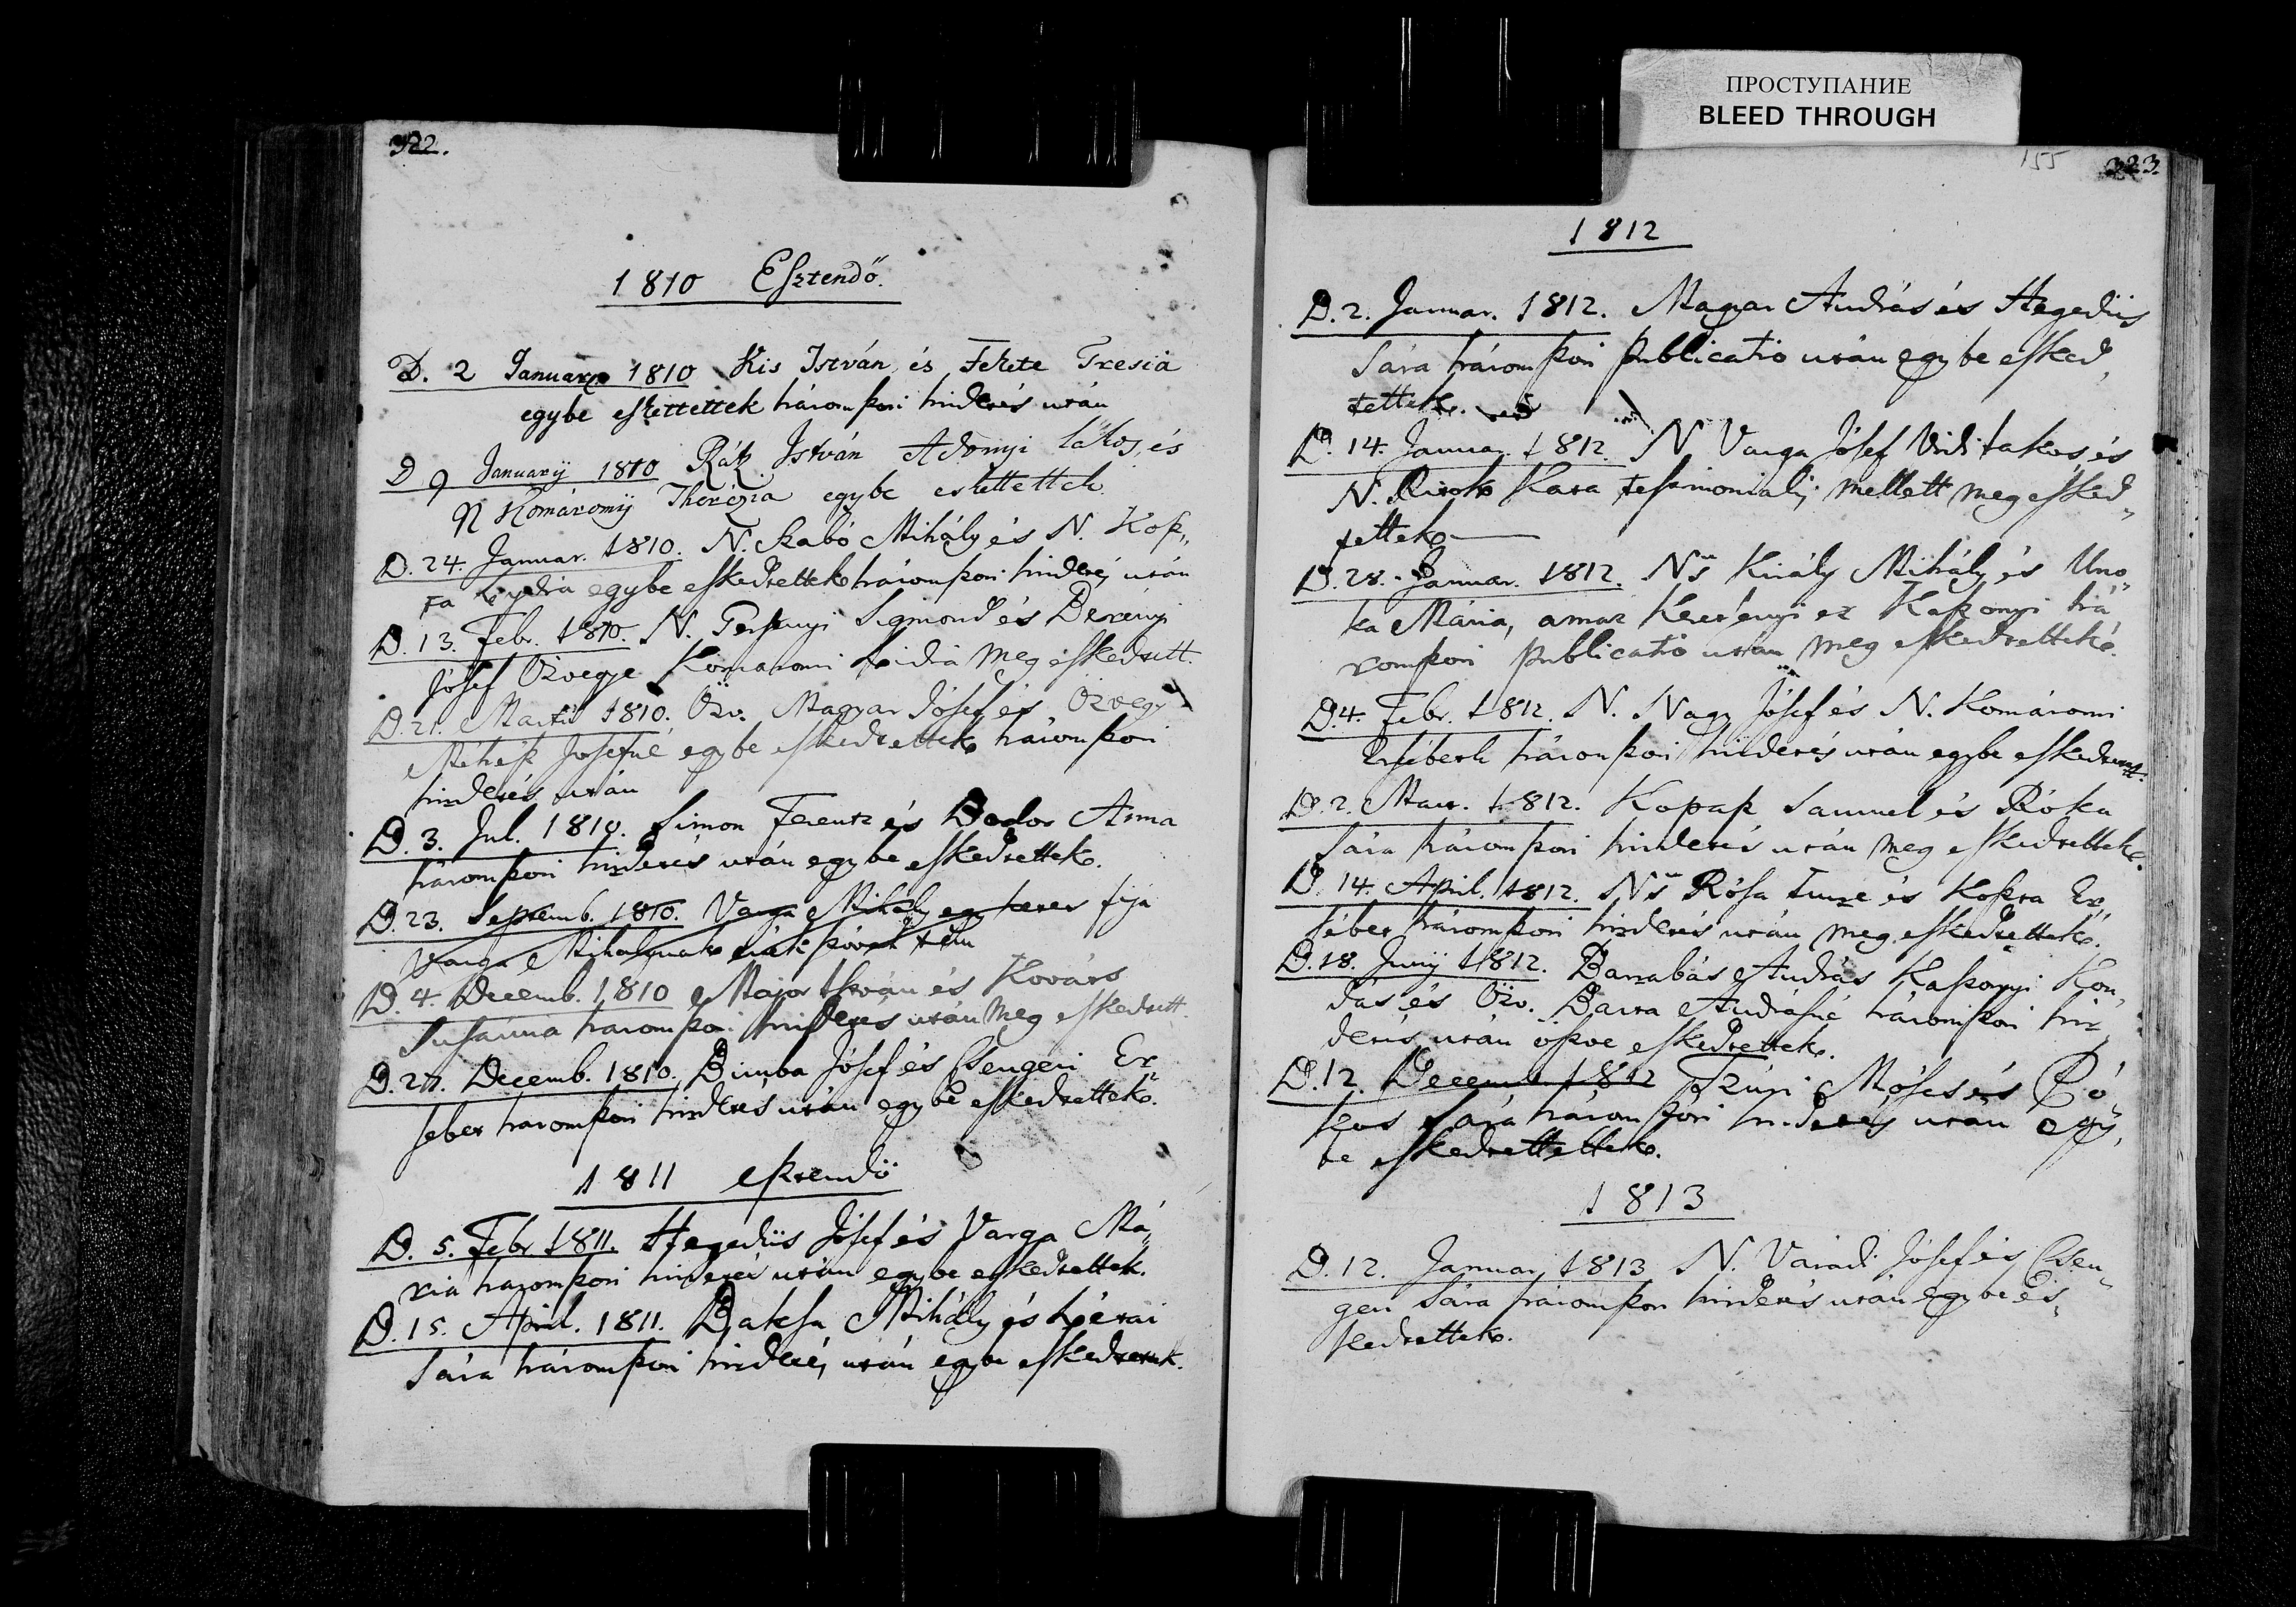 ПРОСТУПАНИЕ
BLEED THROUGH
322.
1810 Esztendő.
D. 2 Januar 1810 Kis István és Fekete Tresia
egybe eskettettek háromszori hirdetés után
D 9 Januarij 1810 Rátz István Adonyi lakos, és
N Komáromij Therézia egybe eskettettek
D. 24. Januar. 1810. N. Szabó Mihály és N. Kosz„
ta Lydia egybe eskedtettek háromszori hirdetés után
D. 13. Febr. 1810. N. Sigmond és Berényi
Jósef Özvegye Komaromi Lidia meg eskedtett.
D. 21. Martii 1810. Özv. Magyar Jósef és Özvegy
Méhész Josefné egybe eskedtettek háromszori
hirdetés után
D. 3. Jul. 1810. Simon Ferentz és Bodor Anna
háromszori hirdetés után egybe eskedtettek.
D. 23. Septemb. 1810. Varga Mihály egy fija
Varga
D. 4. Decemb. 1810 Major István és Kováts
Susánna háromszori hirdetés után meg eskedtett.
D. 27. Decemb. 1810. Bimba Jósef és Csengeri Er„
séber háromszori hirdetés után egybe eskedtettek.
1811 esztendö
D. 5. Febr 1811. Hegedüs Jósef és Varga Má„
ria háromszori hirdetés után egybe eskedtettek.
D. 15. April. 1811. Baksa Mihály és Lévai
Sára háromszori hirdetés után egybe eskedtettek.
155 323.
1812
D. 2. Januar. 1812. Magyar András és Hegedüs
Sára háromszori publicatio után egybe esked„
tettek.
D. 14. Januar. 1812. N Varga Jósef Vidi lakos és
N. Kata testimonialis mellett meg esked„
tettek
D. 28. Januar. 1812. Ns Király Mihály és Uno„
ka Mária, amaz Kerényi ez Kaszonyi há„
romszori publicatio után meg eskedtettek.
D. 4. Febr. 1812. N. Nagy Jósef és N. Komáromi
Ersébeth háromszori hirdetés után egybe eskedtett.
D. 2. Mart. 1812. Kopasz Samuel és Róka
Sára háromszori hirdetés után meg eskedtettek.
D. 14. April. 1812. Ns Rósa Imre és Koszta Er„
séber háromszori hirdetés után meg eskedtettek.
D. 18. Junij 1812. Barrabás András Kaszonyi Kon„
dás és Özv. Barta Andrásné háromszori hir„
detés után öszve eskedtettek.
D. 12. Decemb 1812 Szüri Móses és Pó„
kos Sára háromszori hirdetés után egy„
be eskedtettettek.
1813
D. 12. Januar 1813 N. Váradi Jósef és Csen„
geri Sára háromszori hirdetés után egybe es„
kedtettek.